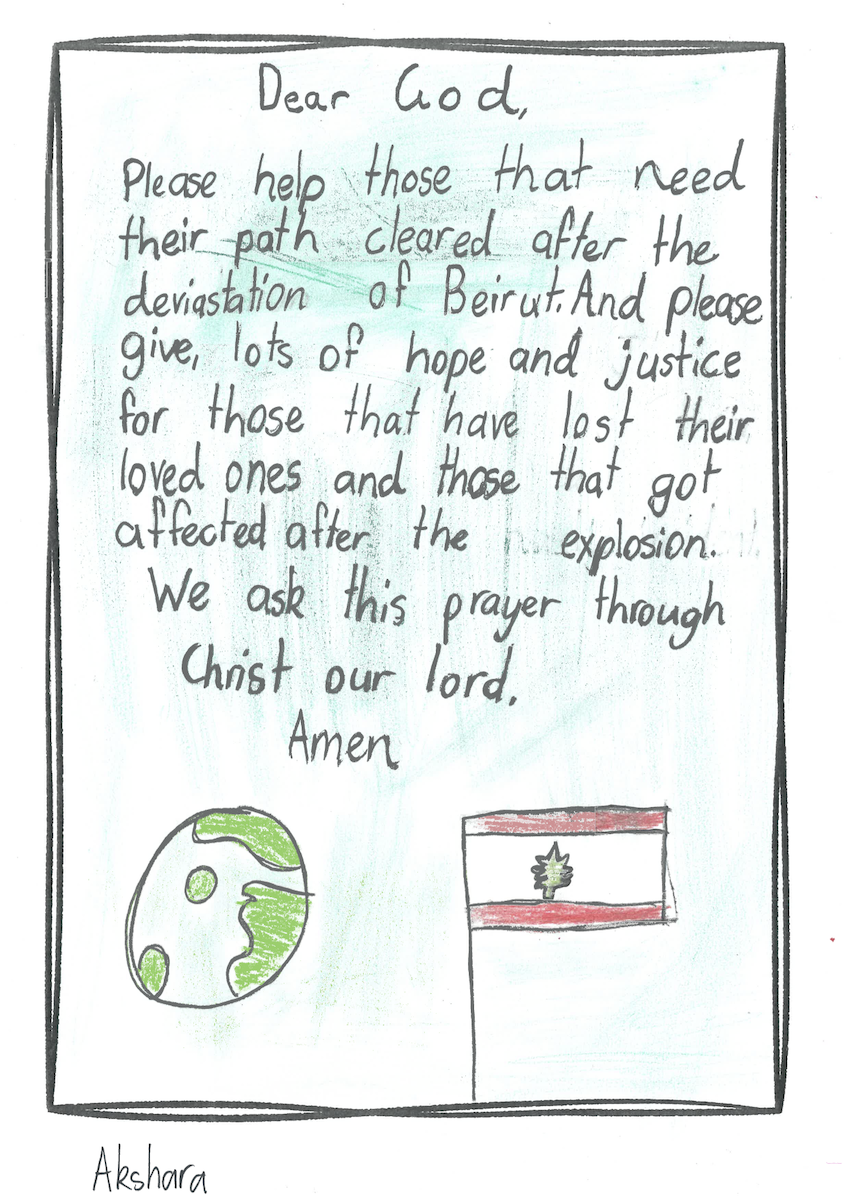 Dear God,
Please help those that need
their path cleared after the
deviastation of Beirut. And please
give, lots of hope and justice
for those that have lost their
loved ones and those that got
affected after the explosion.
We ask this prayer through
Christ our lord.
Amen
Akshara